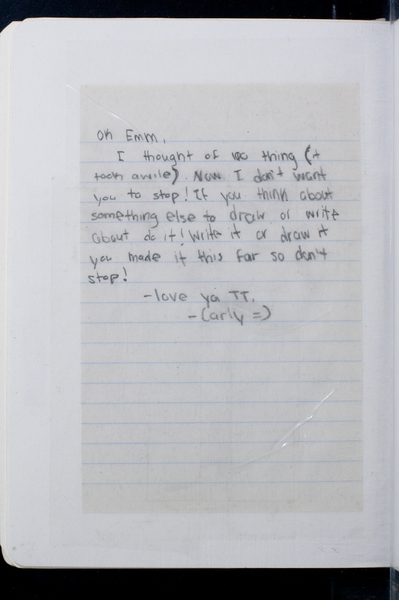 Oh Emm,
I thought of 100 thing (it
took awile) Now I don't want
you to stop! If you think about
something else to draw or write
about do it! Write it or draw it
you made it this far so don't
stop!
-love ya TT,
-Carly =)